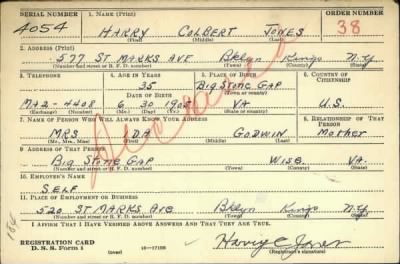 SERIAL NUMBER 1. NAME (Print) ORDER NUMBER
4054 HARRY COLBERT JONES 38
(First) (Middle) (Last)
2. ADDRESS (Print)
577 ST MARKS AVE Bklyn Kings N.Y.
(Number and street or R. F. D. number) (Town) (County) (State)
3. TELEPHONE 4. AGE IN YEARS 5. PLACE OF BIRTH 6. COUNTRY OF CITIZENSHIP
35 BIG STONE GAP
DATE OF BIRTH (Town or county)
MA2-4408 6 30 1905 VA U.S.
(Mo.) (Day) (Yr.) (State or country)
7. NAME OF PERSON WHO WILL ALWAYS KNOW YOUR ADDRESS 8. RELATIONSHIP OF THAT PERSON
MRS IDA GODWIN Mother
(Mr., Mrs., Miss) (First) (Middle) (Last)
9. ADDRESS OF THAT PERSON
BIG STONE GAP WISE VA.
(Number and street or R. F. D. number) (Town) (County) (State)
10. EMPLOYER'S NAME
SELF
11. PLACE OF EMPLOYMENT OR BUSINESS
520 ST MARKS AVE Bklyn Kings N.Y.
(Number and street or R. F. D. number) (Town) (County) (State)
I AFFIRM THAT I HAVE VERIFIED ABOVE ANSWERS AND THAT THEY ARE TRUE.
REGISTRATION CARD
D. S. S. Form 1 (over) 16-17105 Harry C Jones
(Registrant's signature)